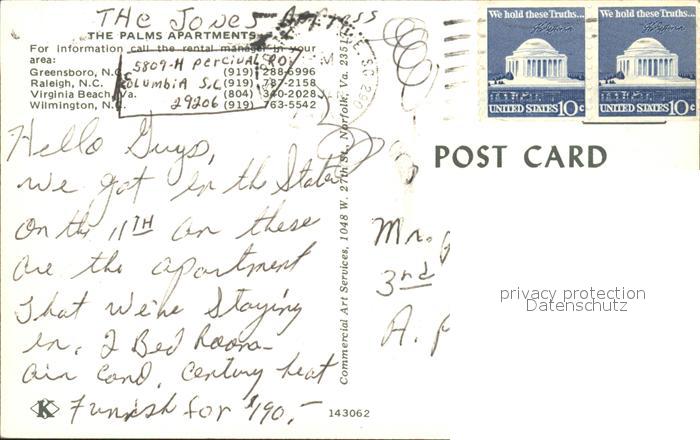 THE Jones Address
THE PALMS APARTMENTS
For information call the rental manager in your
area:
Greensboro, N.C. (919) 288-6996
Raleigh, N.C. (919) 787-2158
Virginia Beach, Va. (804) 340-2028
Wilmington, N.C. (919) 763-5542
5809-H Percival RD.
Columbia S.C.
29206
Hello Guys,
We got in the States
on the 11TH an these
are the apartment
that we're staying
in. 2 Bed Room
air cond. century heat
Furnish for $190.-
K
143062
Commercial Art Services, 1048 W. 27th St., Norfolk, Va. 23517
We hold these Truths...
UNITED STATES 10c
We hold these Truths...
UNITED STATES 10c
POST CARD
Mr.
3rd
A.
privacy protection
Datenschutz